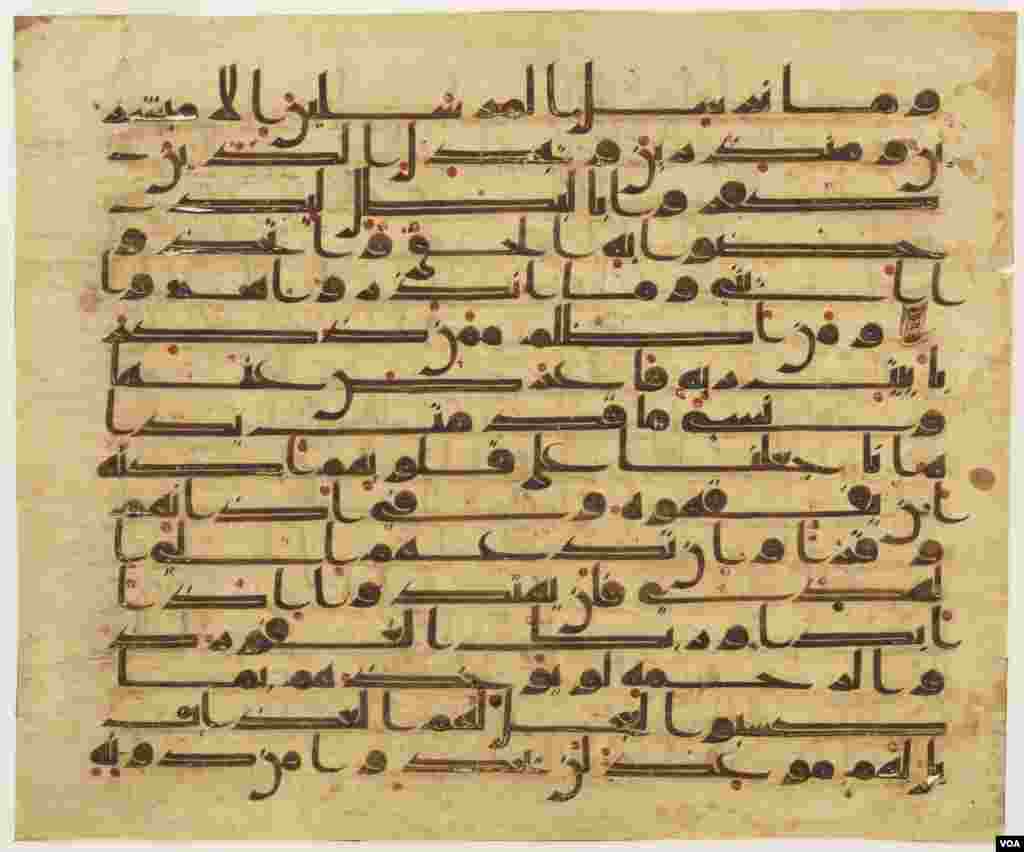 وما نرسل المرسلين الا مبشر
ين ومنذرين ويجدل الذين
كفروا بالبطل ليد
حضوا به الحق واتخذو
ا ايتي وما انذروا هزوا
ومن اظلم ممن ذكر
بايت ربه فاعرض عنها
ونسي ما قدمت يدا
ه انا جعلنا على قلوبهم اكنه
ان يفقهوه وفي اذانهم
وقرا وان تدعهم الى ا
لهدى فلن يهتدوا اذا
ابدا وربك الغفور ذ
و الرحمه لو يوخذهم بما
كسبوا لعجل لهم العذاب
بل لهم موعد لن يجدوا من دونه
VOA